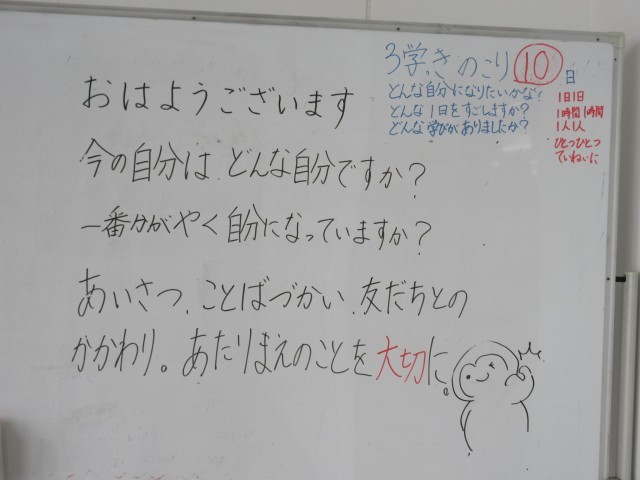 3学きのこり 10 日
どんな自分になりたいかな?
どんな1日をすごしますか?
どんな学びがありましたか?
1日1日
1時間1時間
1人1人
ひとつひとつ
ていねいに
おはようございます
今の自分は どんな自分ですか?
一番かがやく自分になっていますか?
あいさつ、ことばづかい、友だちとの
かかわり。あたりまえのことを大切に。